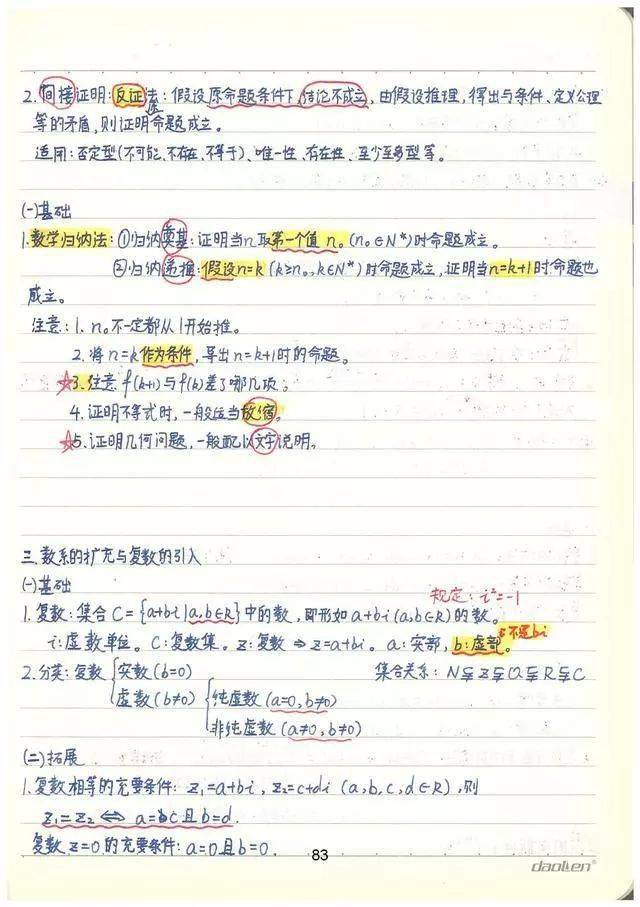 2.间接证明:反证法:假设原命题条件下,结论不成立,由假设推理,得出与条件、定义公理
等的矛盾,则证明命题成立。
适用:否定型(不可能、不存在、不等于)、唯一性、存在性、至少至多型等。
(一)基础
1.数学归纳法:①归纳奠基:证明当n取第一个值n₀(n₀∈N*)时命题成立。
②归纳递推:假设n=k(k≥n₀,k∈N*)时命题成立,证明当n=k+1时命题也
成立。
注意:1、n₀不一定都从1开始推。
2.将n=k作为条件,导出n=k+1时的命题。
☆3.注意f(k+1)与f(k)差了哪几项;
4.证明不等式时,一般适当放缩。
☆5.证明几何问题,一般配以文字说明。
三.数系的扩充与复数的引入
(一)基础
规定:i²=-1
1.复数:集合C={a+bi|a,b∈R}中的数,即形如a+bi(a,b∈R)的数。
不是bi
i:虚数单位。C:复数集。z:复数⇒z=a+bi。a:实部,b:虚部。
2.分类:复数{实数(b=0) 集合关系:N⫋Z⫋Q⫋R⫋C
虚数(b≠0){纯虚数(a=0,b≠0)
非纯虚数(a≠0,b≠0)
(二)拓展
1.复数相等的充要条件:z₁=a+bi,z₂=c+di(a,b,c,d∈R),则
z₁=z₂⇔a=c且b=d.
复数z=0的充要条件:a=0且b=0.
83
daolien®